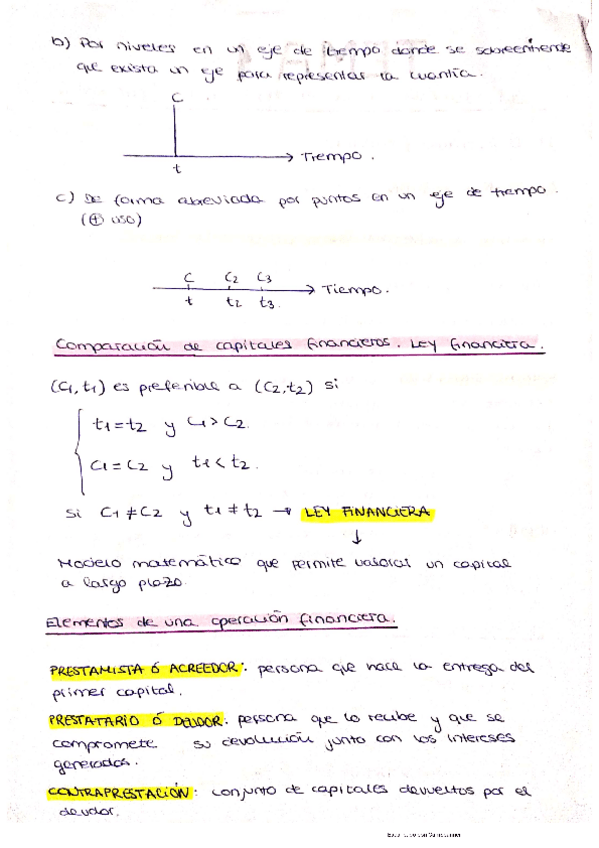 b) Por niveles en un eje de tiempo donde se sobreentiende
que exista un eje para representar la cuantía.
C
Tiempo.
t
c) De forma abreviada por puntos en un eje de tiempo.
(⊕ uso)
C C2 C3
Tiempo.
t t2 t3.
Comparación de capitales financieros. Ley financiera.
(C1,t1) es preferible a (C2,t2) si
t1=t2 y C1>C2.
C1=C2 y t1<t2.
si C1≠C2 y t1≠t2 → LEY FINANCIERA
↓
Modelo matemático que permite valorar un capital
a largo plazo.
Elementos de una operación financiera.
PRESTAMISTA Ó ACREEDOR: persona que hace la entrega del
primer capital.
PRESTATARIO Ó DEUDOR: persona que lo recibe y que se
compromete su devolución junto con los intereses
generados.
CONTRAPRESTACIÓN: conjunto de capitales devueltos por el
deudor.